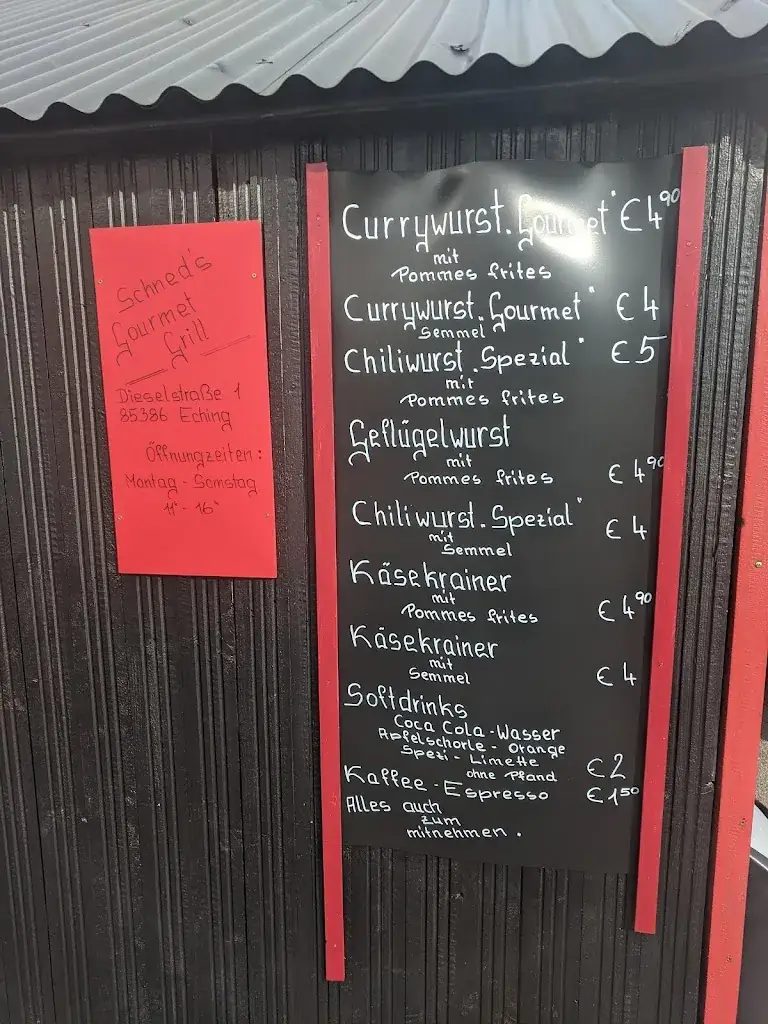 Schned's
Gourmet
Grill
Dieselstraße 1
85386 Eching
Öffnungzeiten:
Montag - Samstag
11°° - 16°°
Currywurst. Gourmet" €4⁹⁰
mit
Pommes frites
Currywurst. Gourmet" €4
Semmel
Chiliwurst. Spezial" €5
mit
Pommes frites
Geflügelwurst
mit
Pommes frites €4⁹⁰
Chiliwurst. Spezial" €4
mit
Semmel
Käsekrainer
mit
Pommes frites €4⁹⁰
Käsekrainer
mit
Semmel €4
Softdrinks
Coca Cola - Wasser
Apfelschorle - Orange
Spezi - Limette
ohne Pfand €2
Kaffee - Espresso €1⁵⁰
Alles auch
zum
mitnehmen.